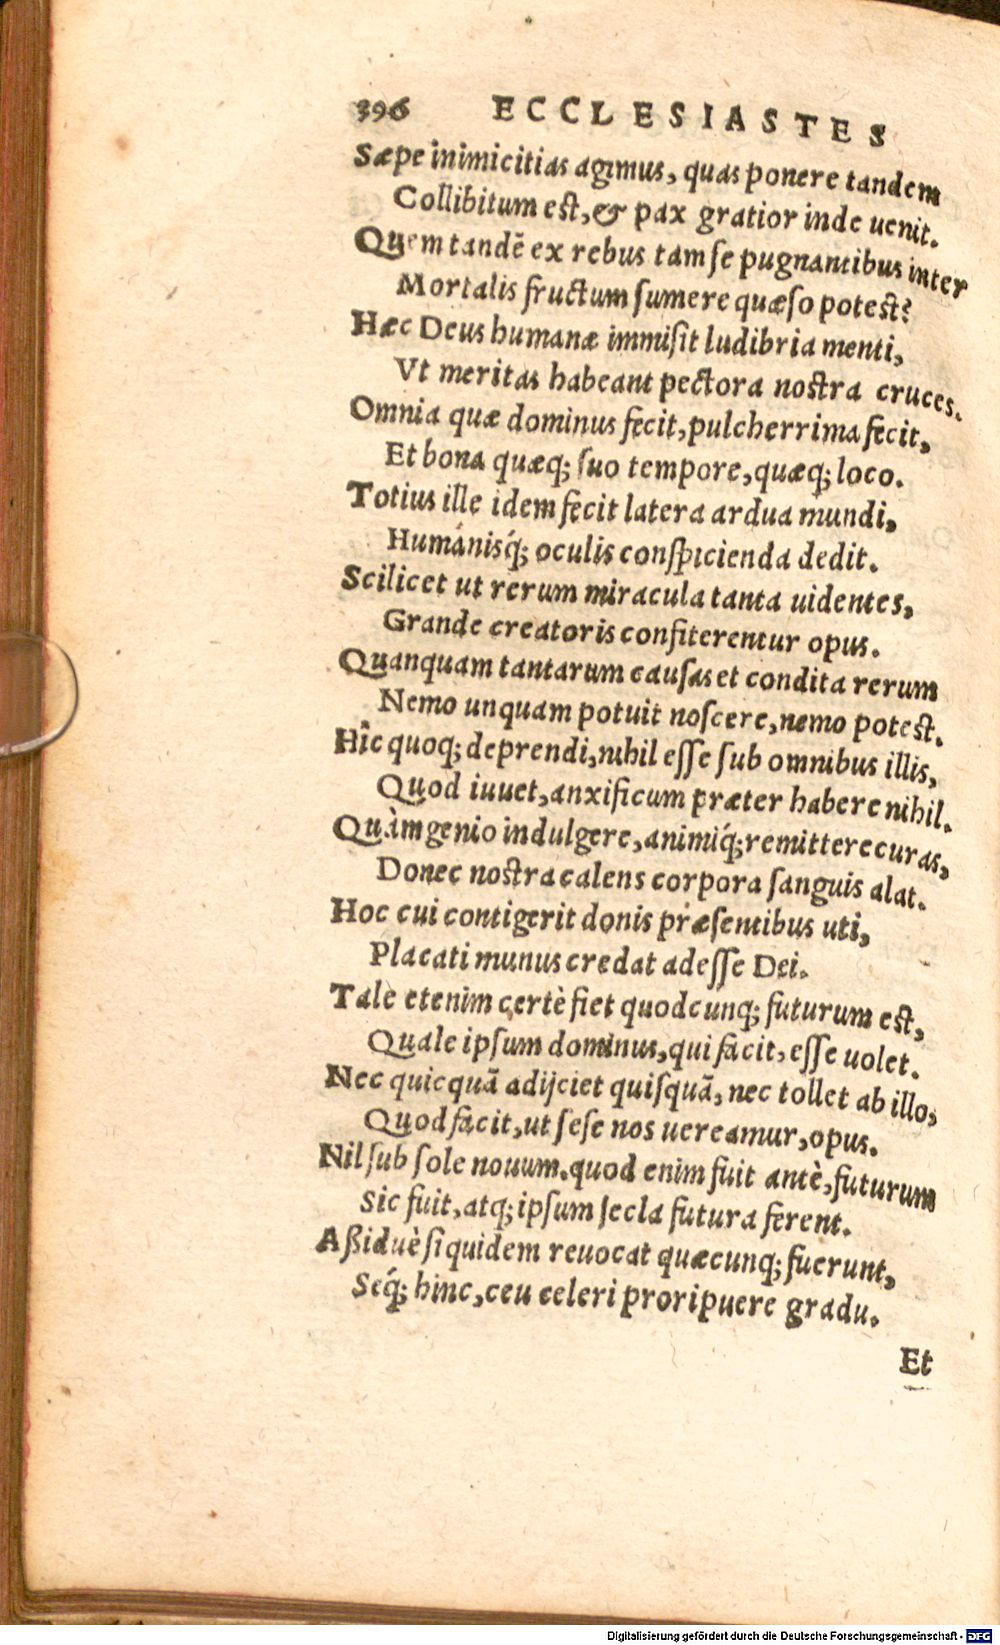 396 ECCLESIASTES
Sæpe inimicitias agimus, quas ponere tandem
Collibitum est, & pax gratior inde uenit.
Quem tandē ex rebus tam se pugnantibus inter
Mortalis fructum sumere quæso potest?
Hæc Deus humanæ immisit ludibria menti,
Vt meritas habeant pectora nostra cruces.
Omnia quæ dominus fecit, pulcherrima fecit,
Et bona quæq; suo tempore, quæq; loco.
Totius ille idem fecit latera ardua mundi,
Humánisq́; oculis conspicienda dedit.
Scilicet ut rerum miracula tanta uidentes,
Grande creatoris confiterentur opus.
Quanquam tantarum causas et condita rerum
Nemo unquam potuit noscere, nemo potest.
Hic quoq; deprendi, nihil esse sub omnibus illis,
Quod iuuet, anxificum præter habere nihil.
Quàm genio indulgere, animiq́; remittere curas,
Donec nostra calens corpora sanguis alat.
Hoc cui contigerit donis præsentibus uti,
Placati munus credat adesse Dei.
Tale etenim certè fiet quodcunq; futurum est,
Quale ipsum dominus, qui facit, esse uolet.
Nec quicquā adijciet quisquā, nec tollet ab illo,
Quod facit, ut sese nos uereamur, opus.
Nil sub sole nouum. quod enim fuit antè, futurum
Sic fuit, atq; ipsum secla futura ferent.
Aßiduè siquidem reuocat quæcunq; fuerunt,
Seq́; hinc, ceu celeri proripuere gradu.
Et
Digitalisierung gefördert durch die Deutsche Forschungsgemeinschaft - DFG